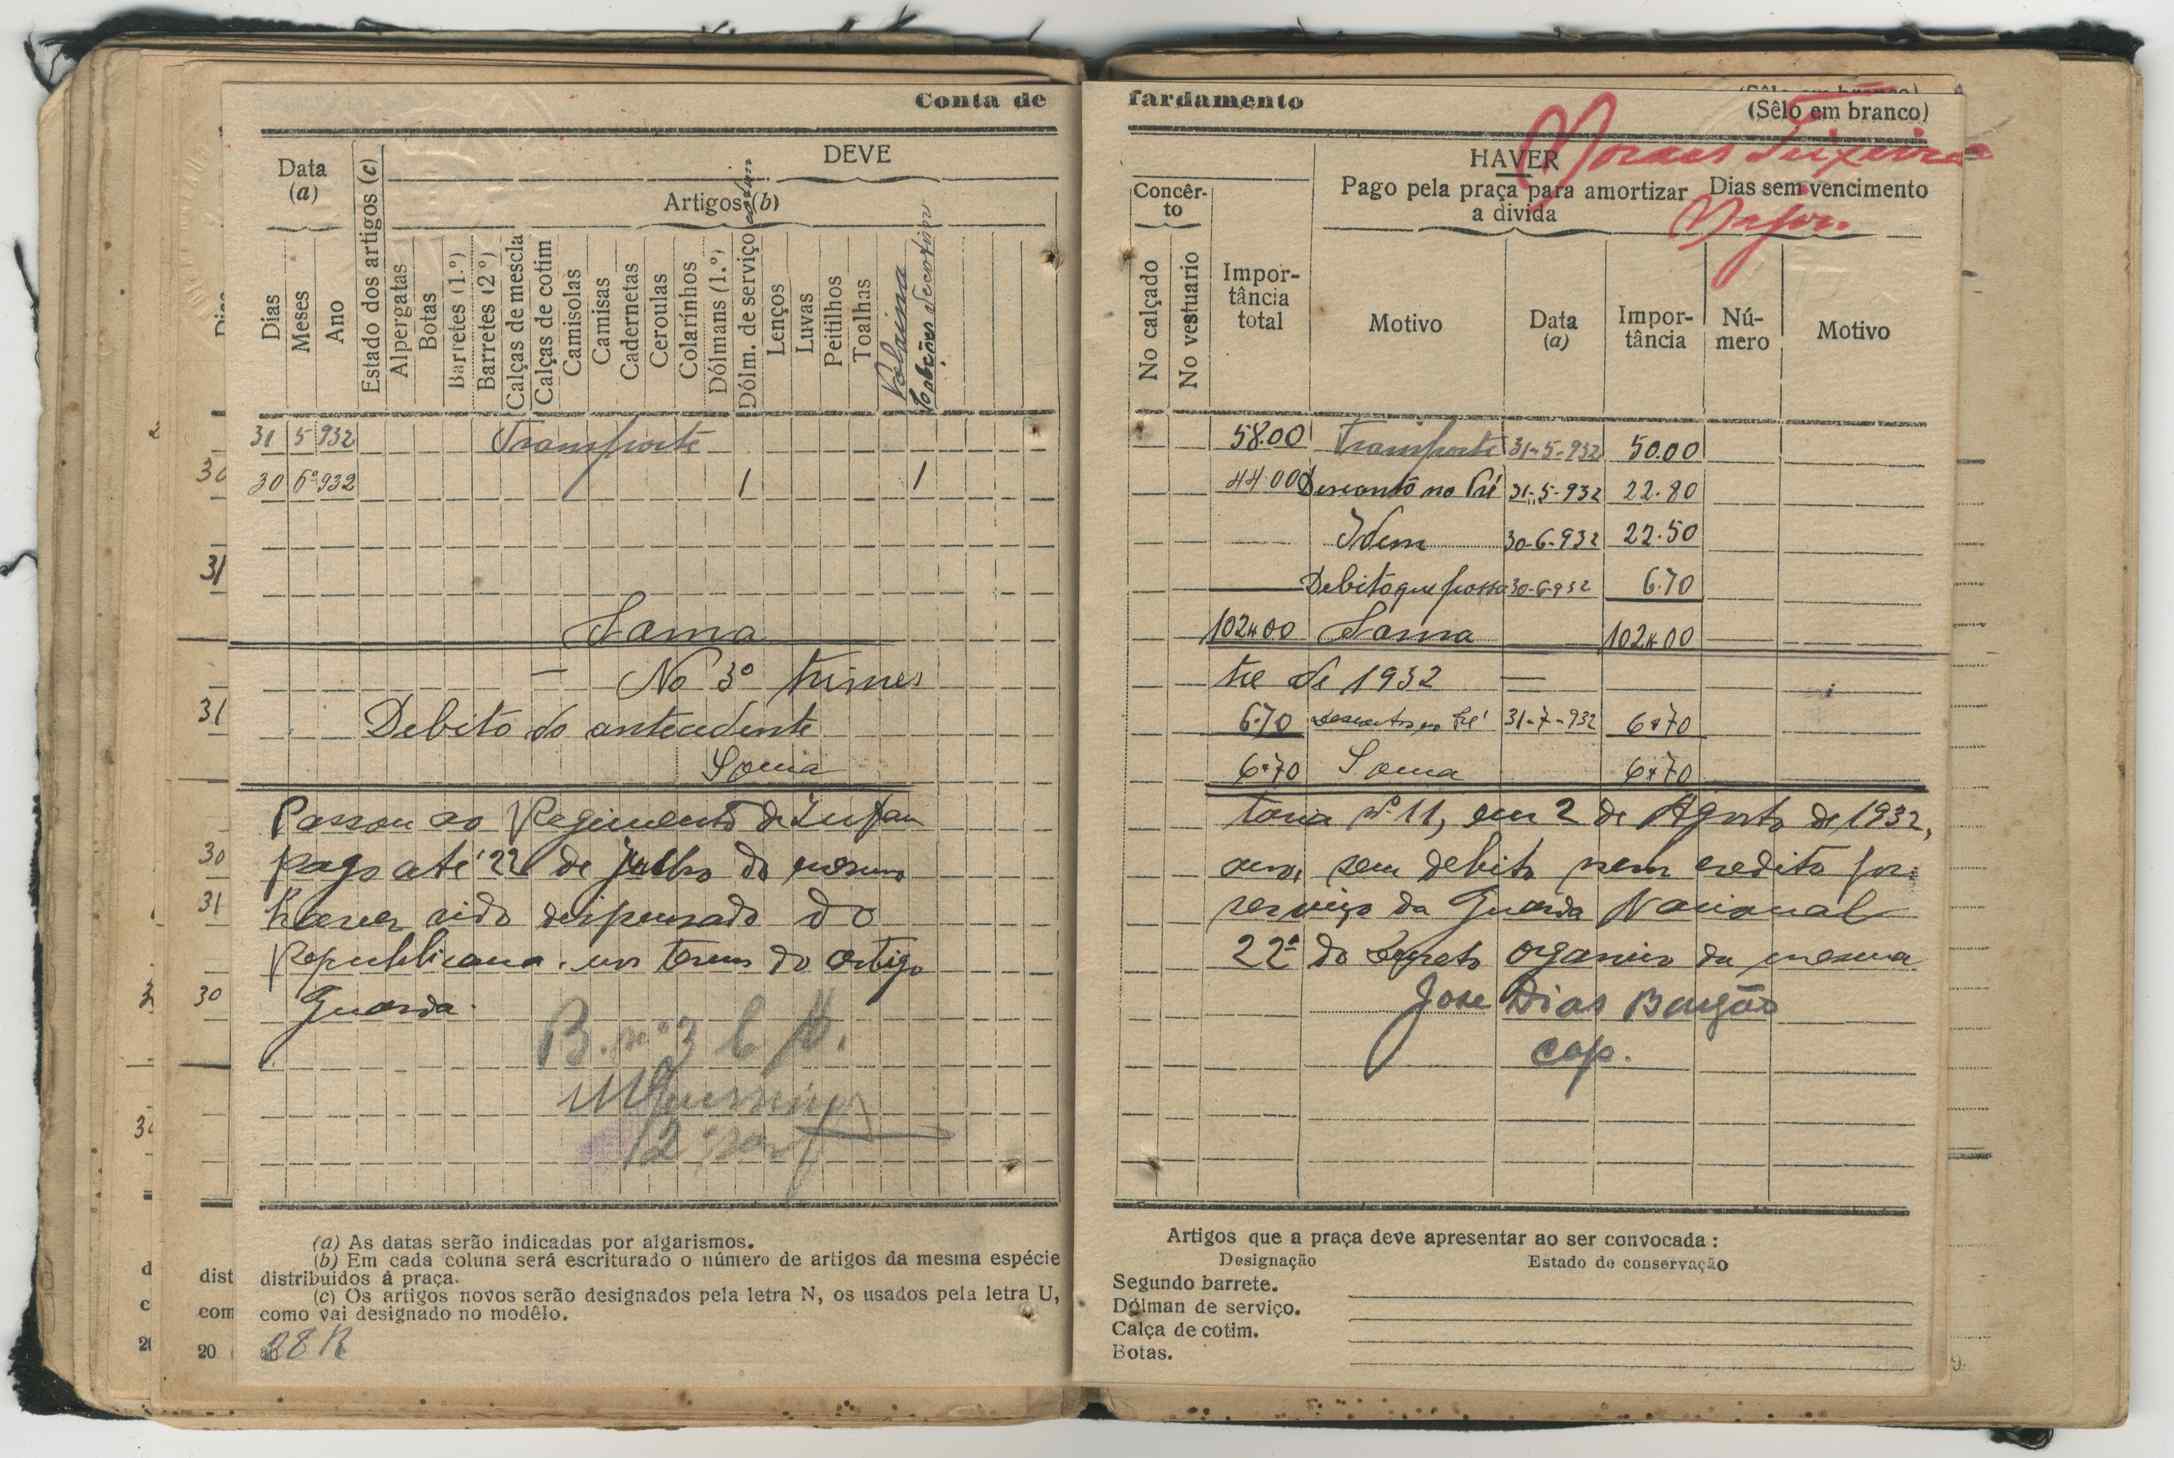 Conta de fardamento
(Sêlo em branco)
Moraes Teixeira
Major.
Data
(a)
DEVE
Artigos (b)
Dias
Meses
Ano
Estado dos artigos (c)
Alpergatas
Botas
Barretes (1.º)
Barretes (2.º)
Calças de mescla
Calças de cotim
Camisolas
Camisas
Cadernetas
Ceroulas
Colarinhos
Dólmans (1.º)
Dólm. de serviço
Lenços
Luvas
Peitilhos
Toalhas
Polaina
HAVER
Concêrto
No calçado
No vestuario
Importância total
Pago pela praça para amortizar a divida
Motivo
Data (a)
Importância
Dias sem vencimento
Número
Motivo
31 5 932 Transporte 58.00 Transporte 31-5-932 50.00
30 6º 932 1 1 44.00 Desconto no Pré 31-5-932 22.80
Idem 30-6-932 22.50
Debito que passa 30-6-932 6.70
Soma 102$00 Soma 102$00
No 3º trimestre de 1932
Debito do antecedente 6.70 Desconto no Pré 31-7-932 6$70
Soma 6$70 Soma 6$70
Passou ao Regimento de Infantaria nº 11, em 2 de Agosto de 1932,
pago até 22 de julho do mesmo ano, sem debito nem credito por
haver sido dispensado do serviço da Guarda Nacional
Republicana, nos termos do artigo 22º do Decreto organico da mesma
Guarda.
José Dias Bargão
cap.
B. nº 3
2º sarg
(a) As datas serão indicadas por algarismos.
(b) Em cada coluna será escriturado o número de artigos da mesma espécie
distribuidos á praça.
(c) Os artigos novos serão designados pela letra N, os usados pela letra U,
como vai designado no modêlo.
28 R
Artigos que a praça deve apresentar ao ser convocada:
Designação Estado de conservação
Segundo barrete.
Dólman de serviço.
Calça de cotim.
Botas.
30
31
31
30
31
30
dist
com
20